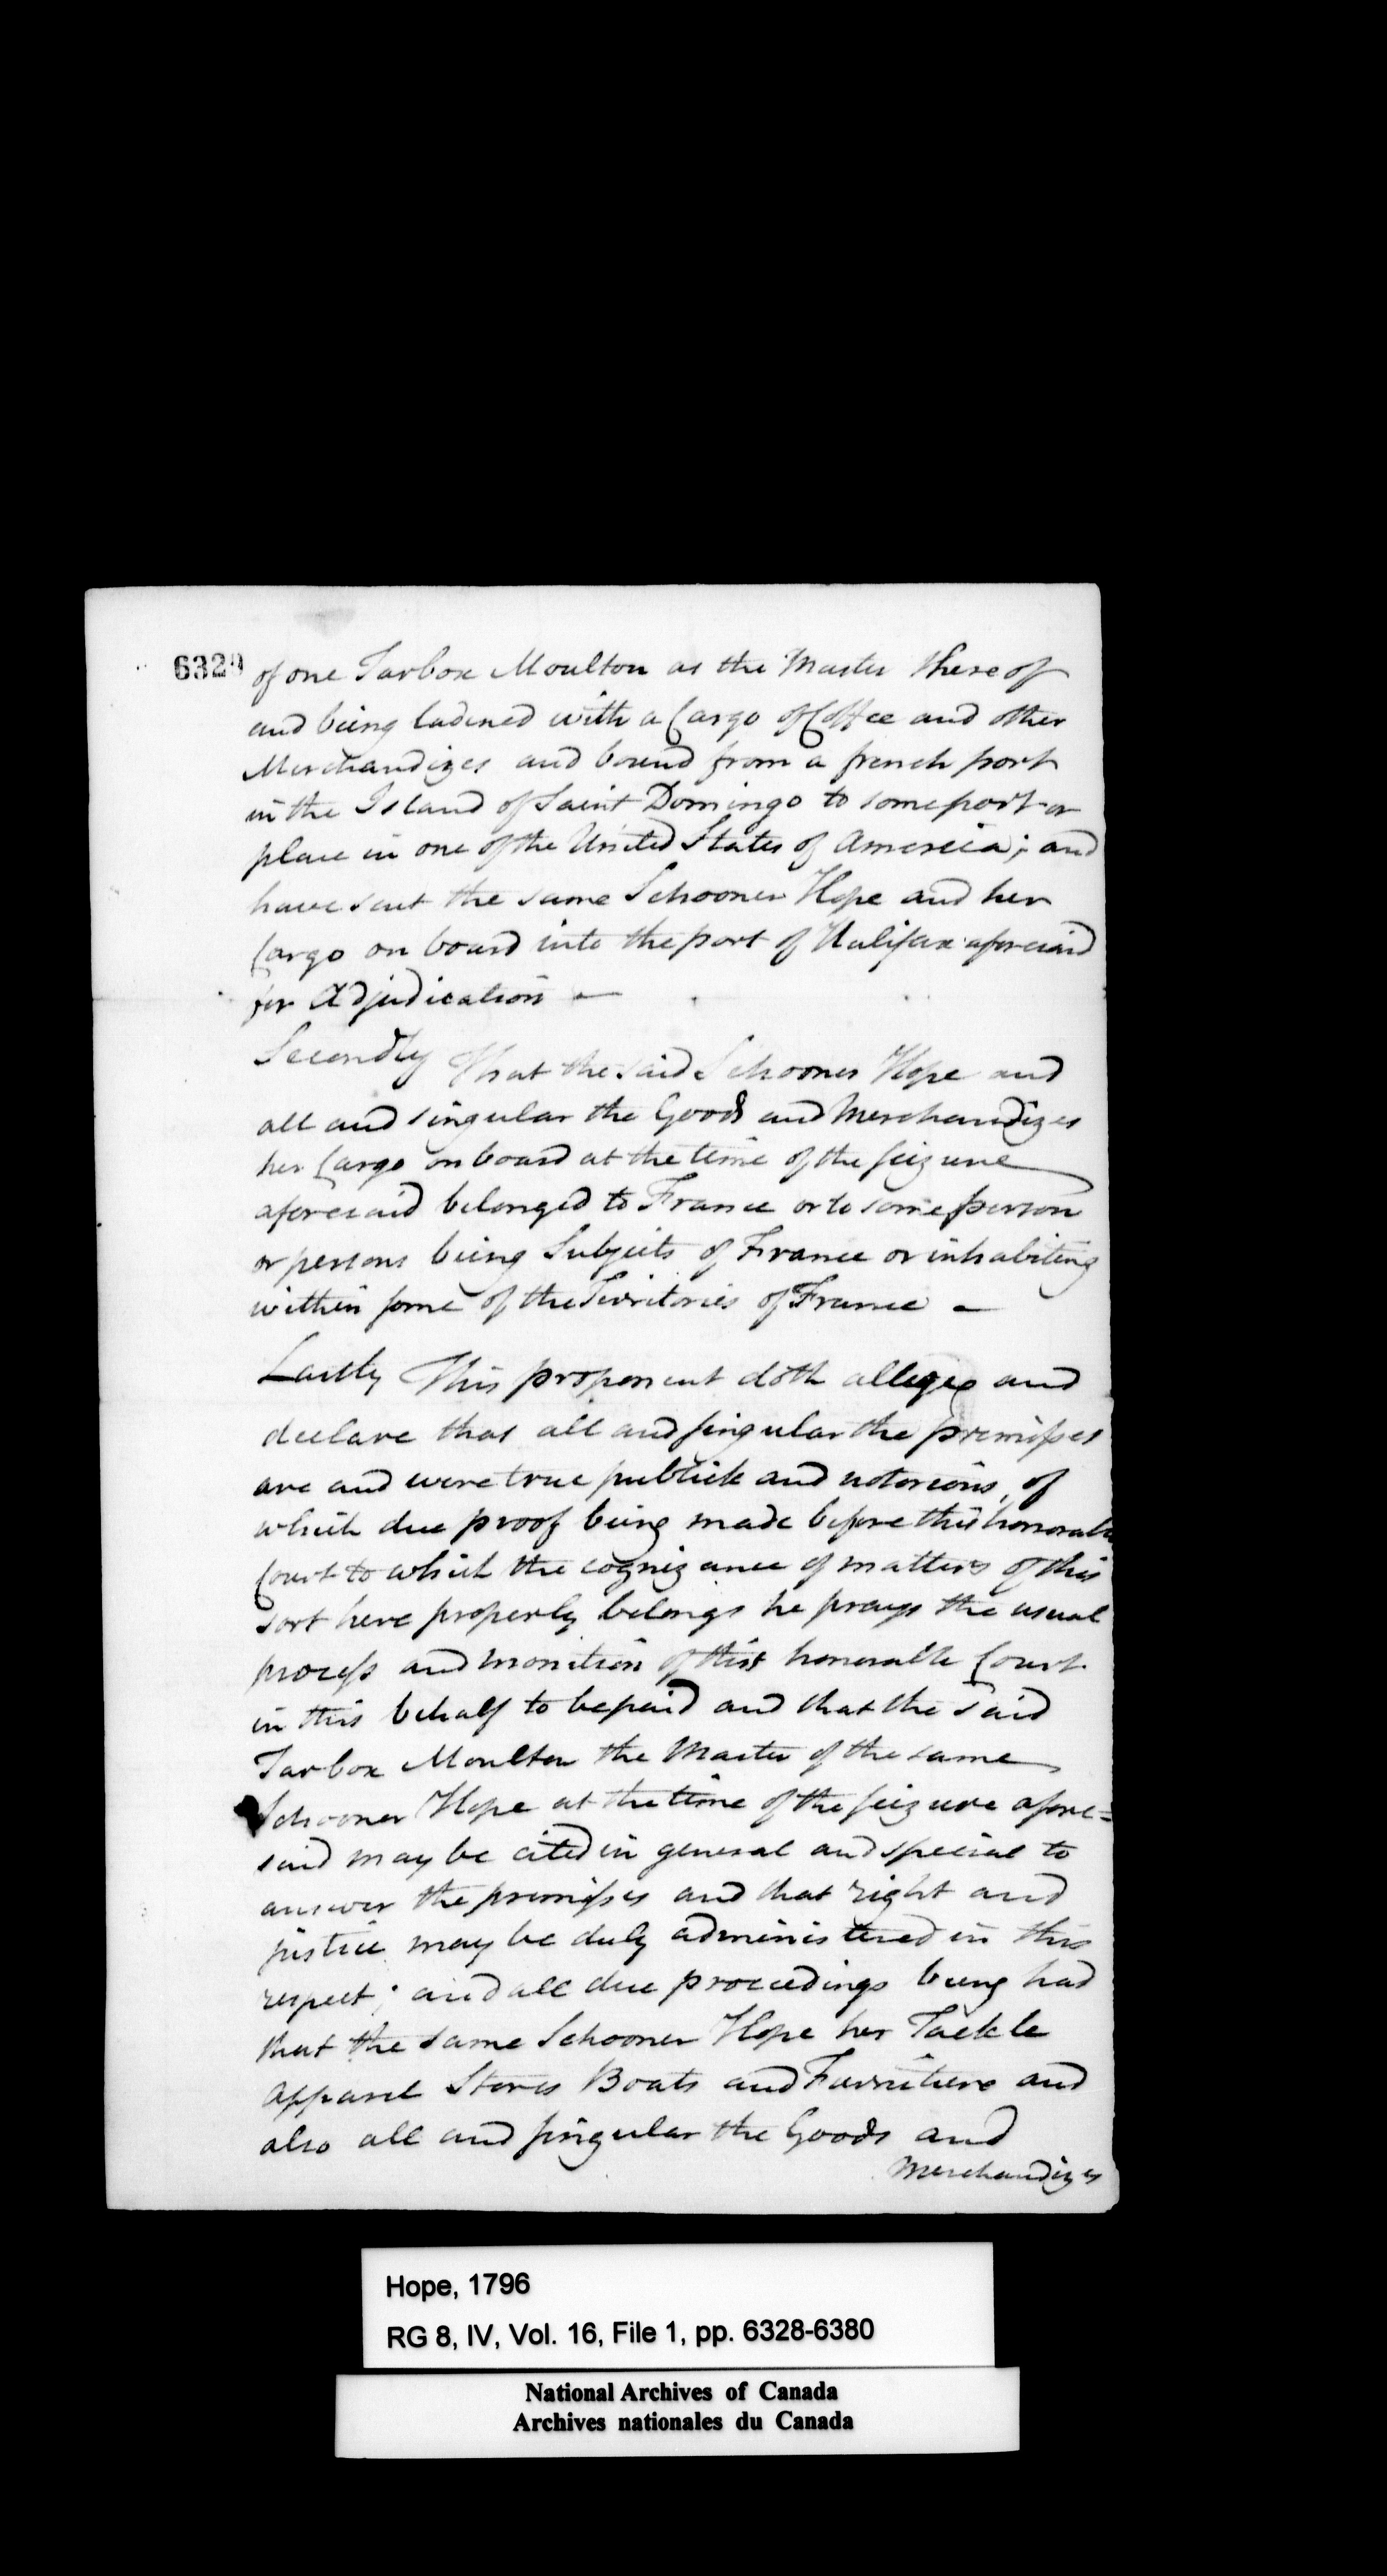 6329
of one Tarbox Moulton as the Master thereof
and being ladened with a Cargo of Coffee and other
Merchandizes and bound from a french port
in the Island of Saint Domingo to some port or
place in one of the United States of America; and
have sent the same Schooner Hope and her
Cargo on board into the port of Halifax aforesaid
for Adjudication —
Secondly That the said Schooner Hope and
all and singular the Goods and Merchandizes
her Cargo on board at the time of the seizure
aforesaid belonged to France or to some person
or persons being Subjects of France or inhabiting
within some of the Territories of France —
Lastly This proponent doth allege and
declare that all and singular the premisses
are and were true publick and notorious, of
which due proof being made before this honorable
Court to which the cognizance of matters of this
sort here properly belongs he prays the usual
process and monition of this honorable Court
in this behalf to be paid and that the said
Tarbox Moulton the Master of the same
Schooner Hope at the time of the seizure afore=
said may be cited in general and special to
answer the premisses and that right and
justice may be duly administered in this
respect; and all due proceedings being had
that the same Schooner Hope her Tackle
Apparel Stores Boats and Furniture and
also all and singular the Goods and
Merchandizes
Hope, 1796
RG 8, IV, Vol. 16, File 1, pp. 6328-6380
National Archives of Canada
Archives nationales du Canada